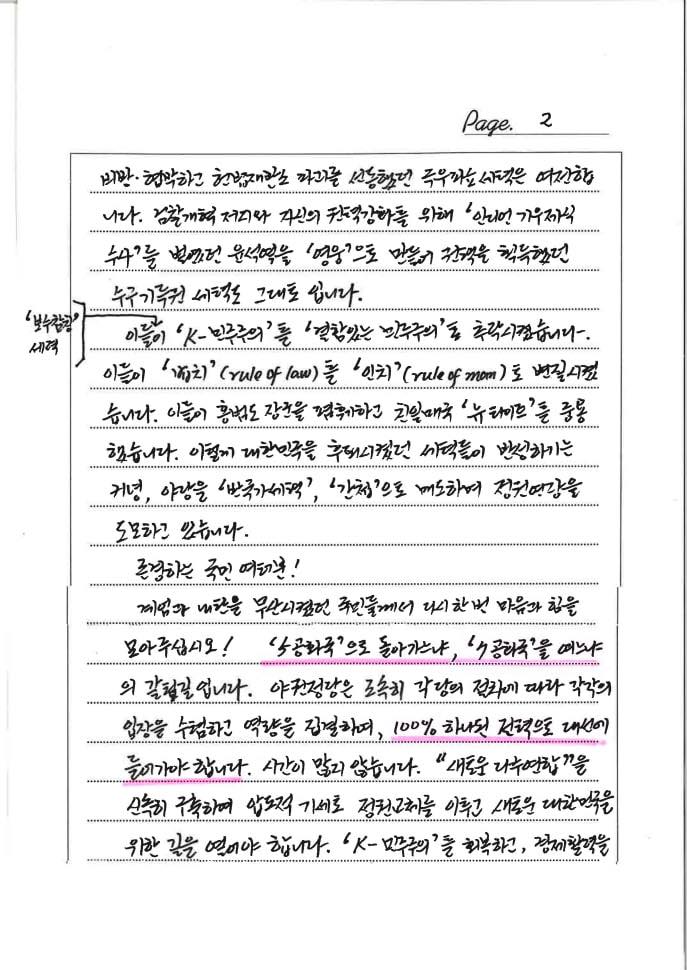 Page. 2
비판·협박하고 헌법재판소 파괴를 선동했던 극우파쇼세력은 여전합
니다. 검찰개혁 저지와 자신의 권력강화를 위해 '인디언 기우제식
수사'를 벌였던 윤석열을 '영웅'으로 만들어 권력을 획득했던
수구기득권 세력도 그대로 입니다.
'보수참칭'
세력
이들이 'K-민주주의'를 '결함있는 민주주의'로 추락시켰습니다.
이들이 '법치'(rule of law)를 '인치'(rule of man)로 변질시켰
습니다. 이들이 홍범도 장군을 폄훼하고 친일매국 '뉴라이트'를 중용
했습니다. 이렇게 대한민국을 후퇴시켰던 세력들이 반성하기는
커녕, 야당을 '반국가세력', '간첩'으로 매도하며 정권연장을
도모하고 있습니다.
존경하는 국민 여러분!
계엄과 내란을 무산시켰던 국민들께서 다시 한 번 마음과 힘을
모아주십시오! '5공화국'으로 돌아가느냐, '7공화국'을 여느냐
의 갈림길입니다. 야권정당은 조속히 각당의 절차에 따라 각각의
입장을 수렴하고 역량을 집결하며, 100% 하나된 전력으로 대선에
들어가야 합니다. 시간이 많지 않습니다. "새로운 다수연합"을
신속히 구축하며 압도적 기세로 정권교체를 이루고 새로운 대한민국을
위한 길을 열어야 합니다. 'K-민주주의'를 회복하고, 경제활력을